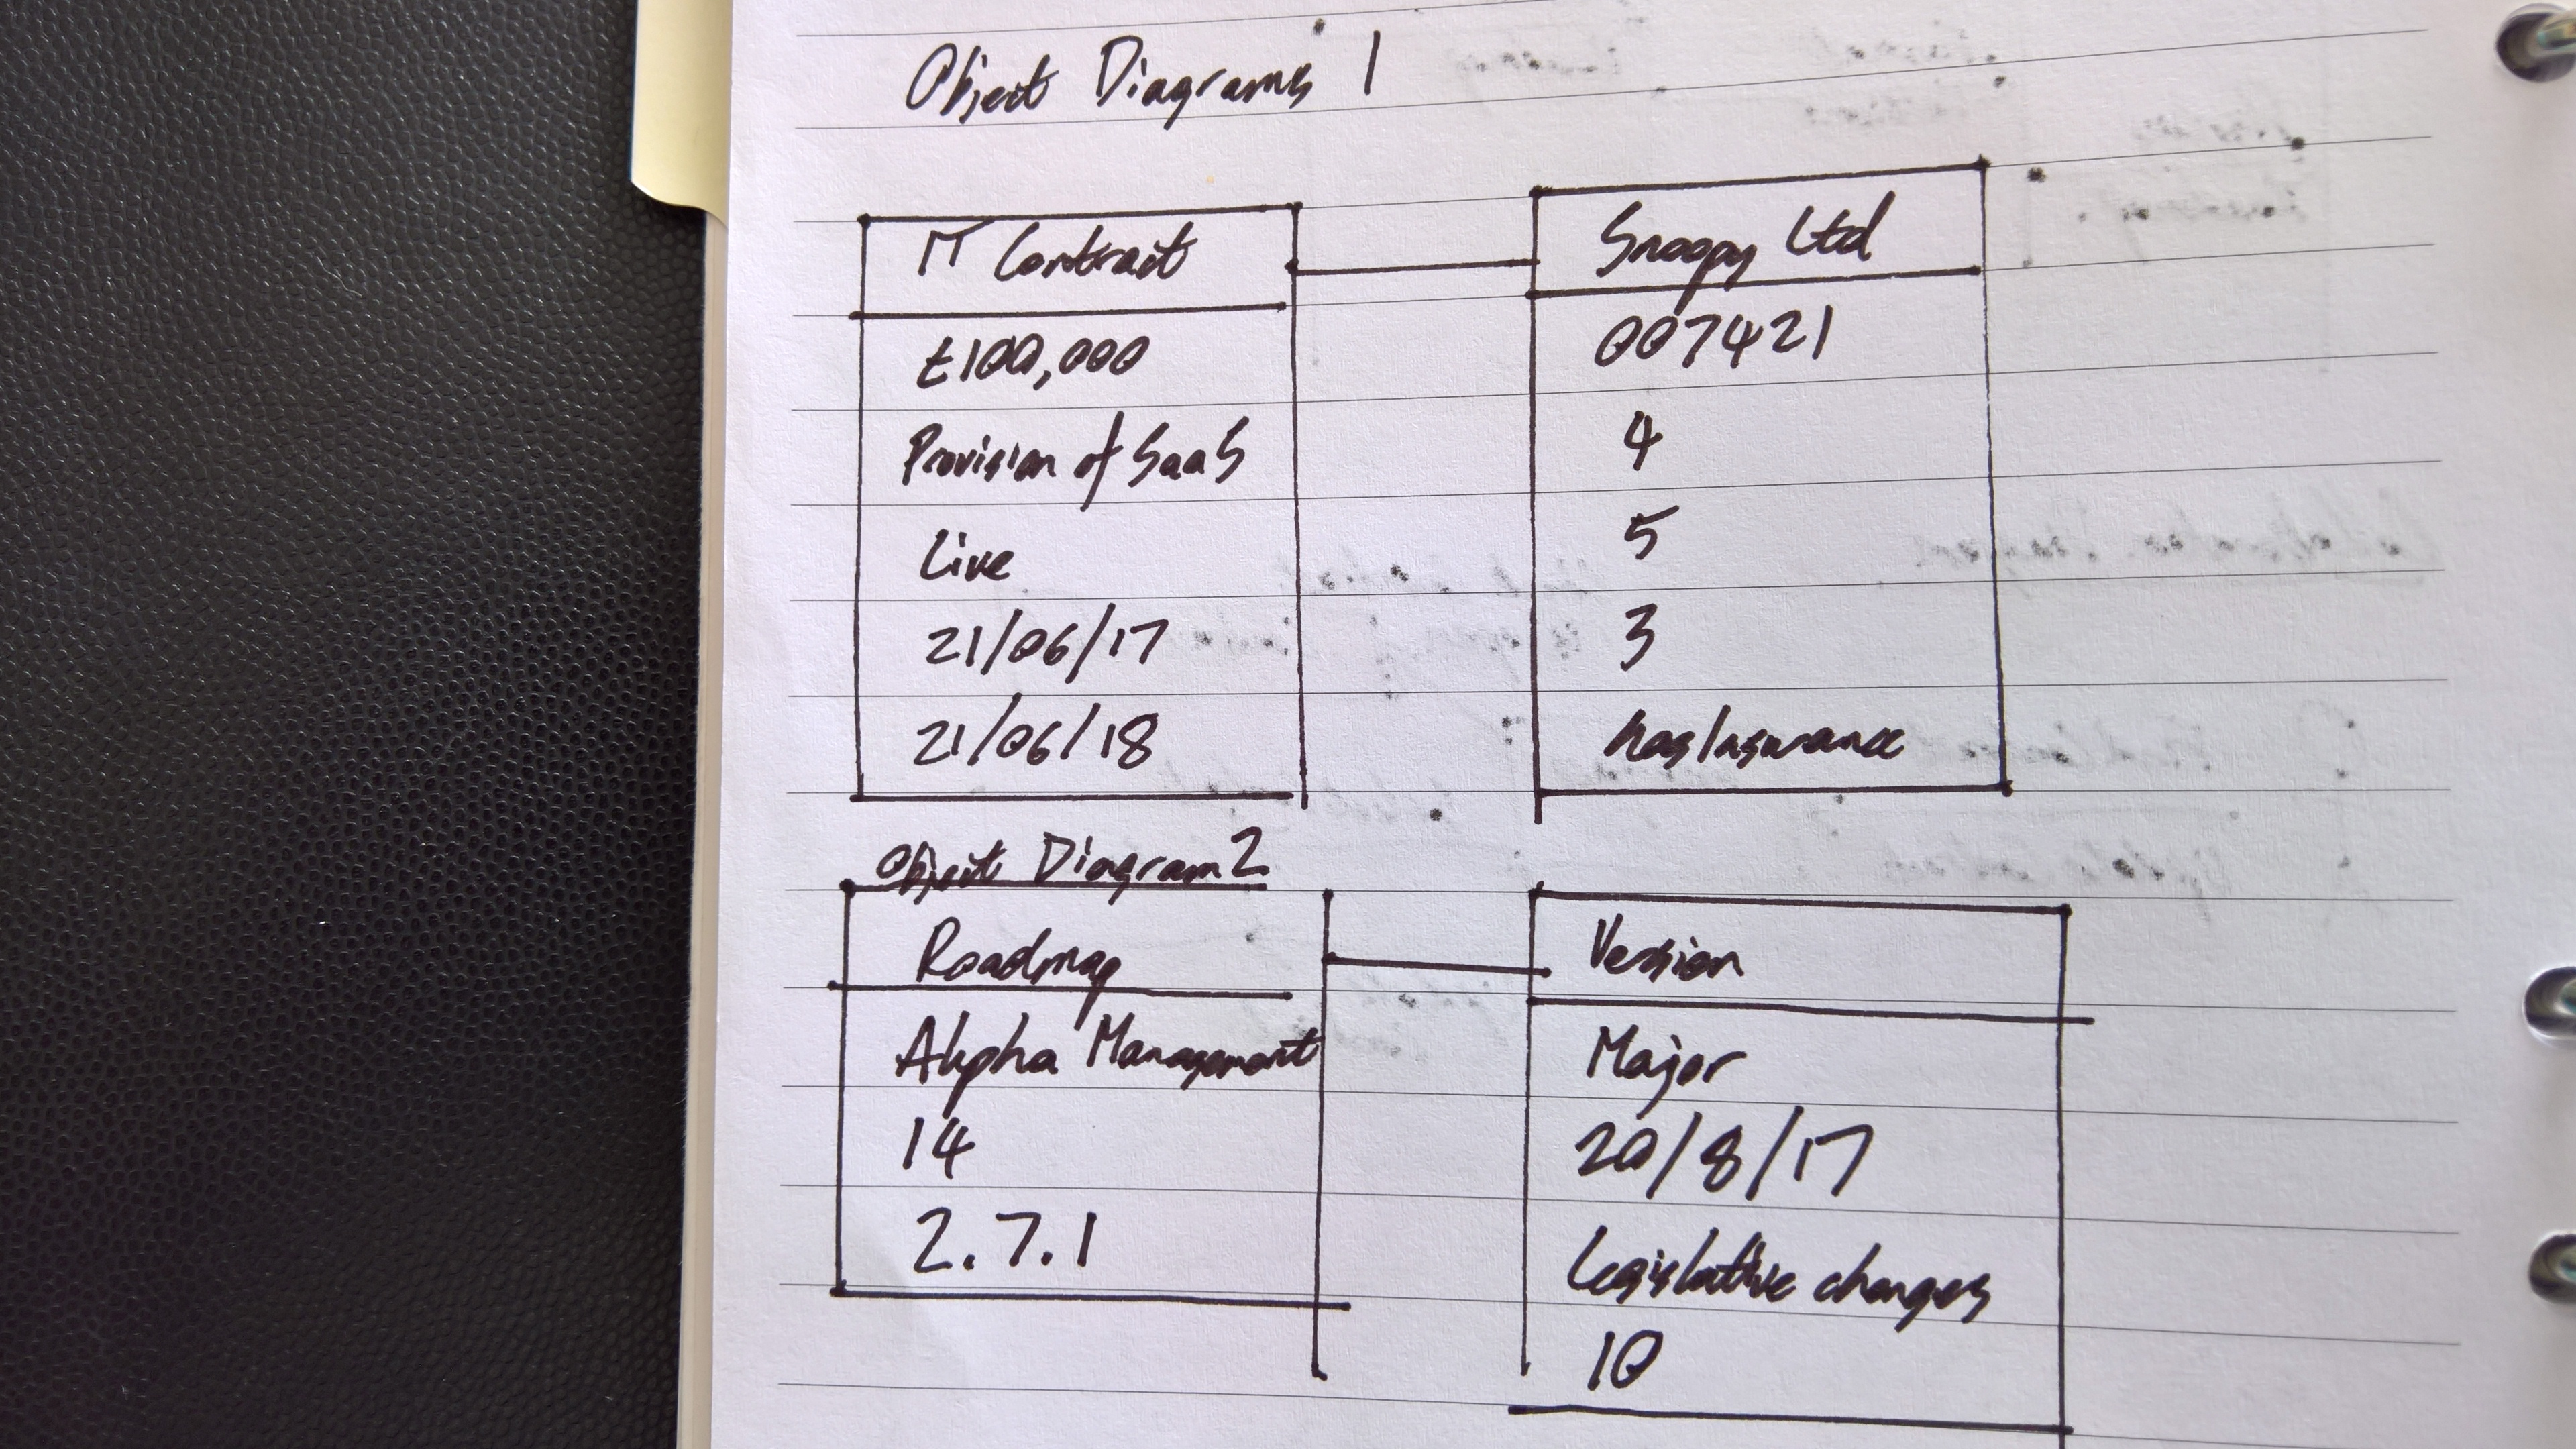 Object Diagrams 1
IT Contract
£100,000
Provision of SaaS
Live
21/06/17
21/06/18
Snoopy Ltd
007421
4
5
3
has Insurance
Object Diagram 2
Roadmap
Alypha Management
14
2.7.1
Vesion
Major
20/8/17
Legislative changes
10